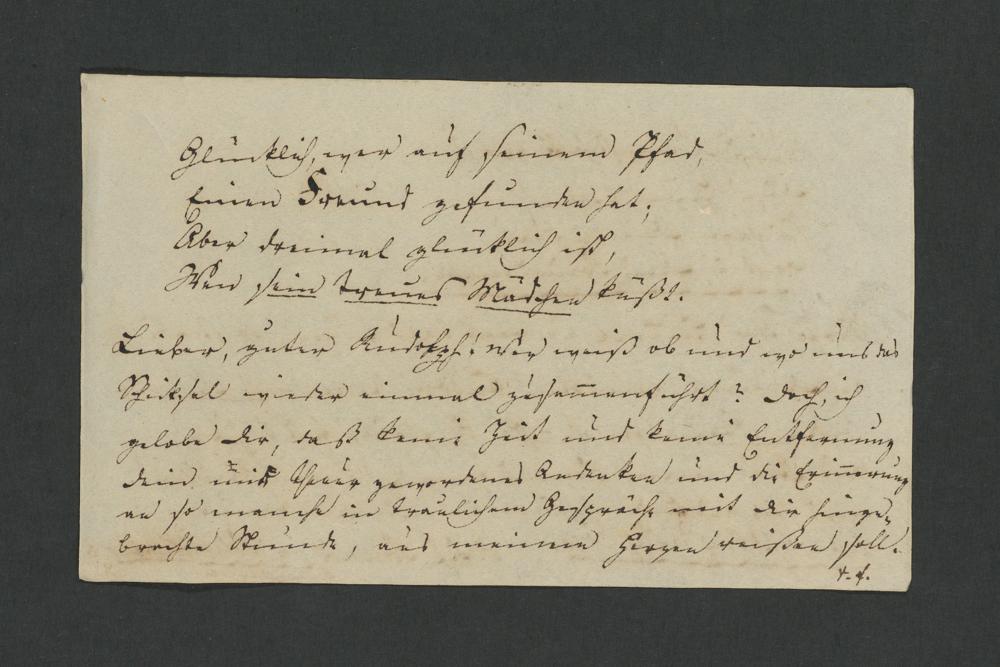 Glücklich, wer auf seinem Pfad,
Einen Freund gefunden hat;
Aber dreimal glücklich ist,
Wen sein treues Mädchen küßt.
Lieber, guter Rudolph! Wer weiß ob und wo uns das
Schiksal wieder einmal zusammenführt? doch, ich
gelobe dir, daß keine Zeit und keine Entfernung
dein mir theuer gewordenes Andenken und die Erinnerung
an so manche in traulichem Gespräche mit dir hinge-
brachte Stunde, aus meinem Herzen reißen soll.